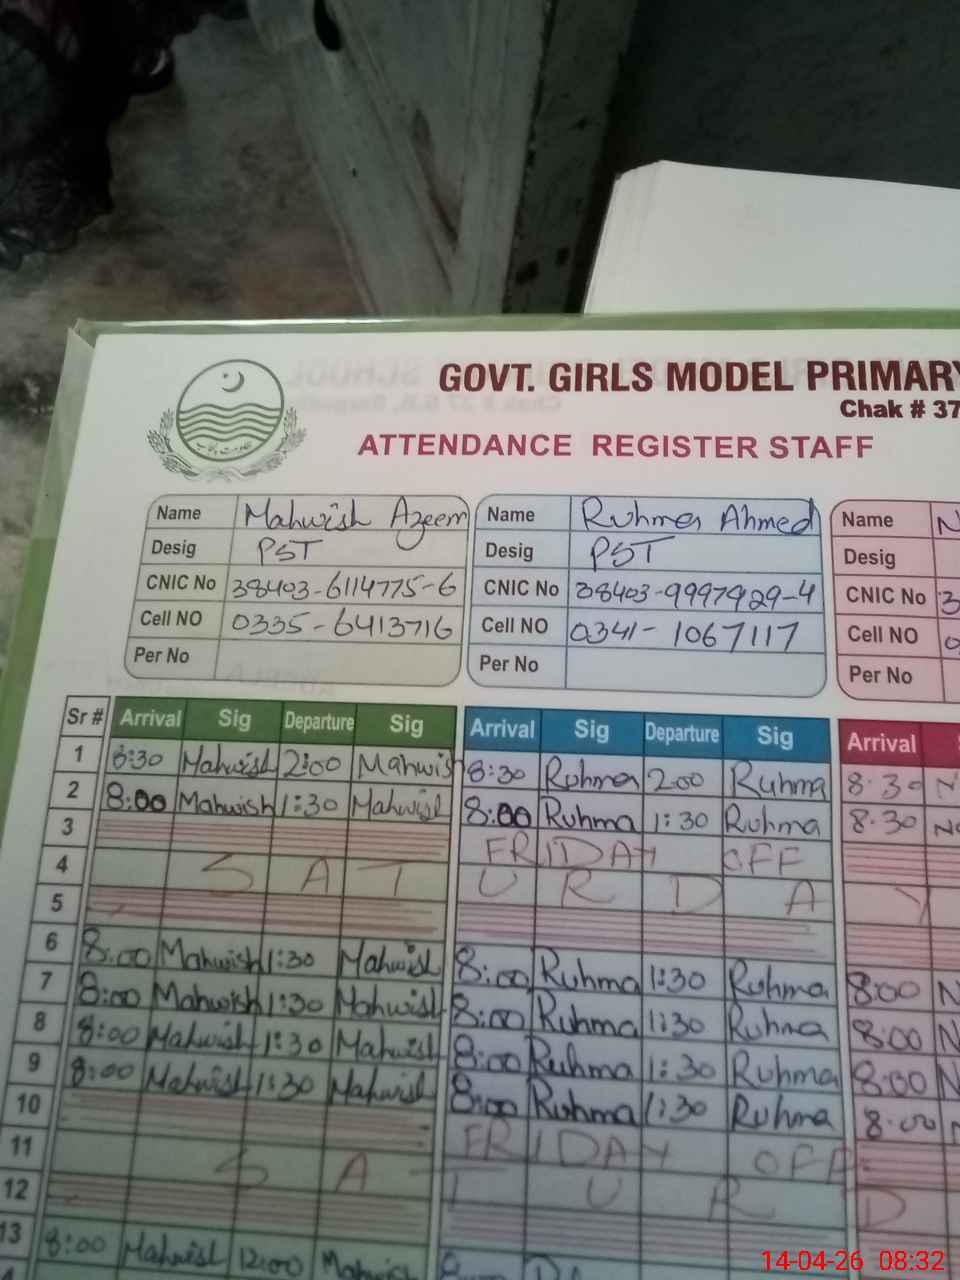 GOVT. GIRLS MODEL PRIMARY
Chak # 37
ATTENDANCE REGISTER STAFF
حکومت پنجاب
Name Mahwish Azeem Name Ruhma Ahmed Name N
Desig PST Desig PST Desig
CNIC No 38403-6114775-6 CNIC No 38403-9997929-4 CNIC No 3
Cell NO 0335-6413716 Cell NO 0341-1067117 Cell NO 0
Per No Per No Per No
Sr # Arrival Sig Departure Sig Arrival Sig Departure Sig Arrival S
1 8:30 Mahwish 2:00 Mahwish 8:30 Ruhma 2:00 Ruhma 8:30 N
2 8:00 Mahwish 1:30 Mahwish 8:00 Ruhma 1:30 Ruhma 8:30 No
3 FRIDAY OFF
4 S A T U R D A Y
5
6 8:00 Mahwish 1:30 Mahwish 8:00 Ruhma 1:30 Ruhma 8:00 N
7 8:00 Mahwish 1:30 Mahwish 8:00 Ruhma 1:30 Ruhma 8:00 N
8 8:00 Mahwish 1:30 Mahwish 8:00 Ruhma 1:30 Ruhma 8:00 N
9 8:00 Mahwish 1:30 Mahwish 8:00 Ruhma 1:30 Ruhma 8:00
10 FRIDAY OFF
11 S A T U R D
12
13 8:00 Mahwish 12:00 Mahwish
14-04-26 08:32